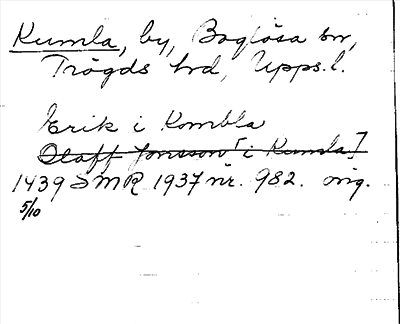 Kumla, by, Boglösa sn,
Trögds hrd, Upps.l.
Erik i Kombla
Olaff Jonsson [i Kumla]
1439 SMR 1937 nr. 982. orig.
5/10